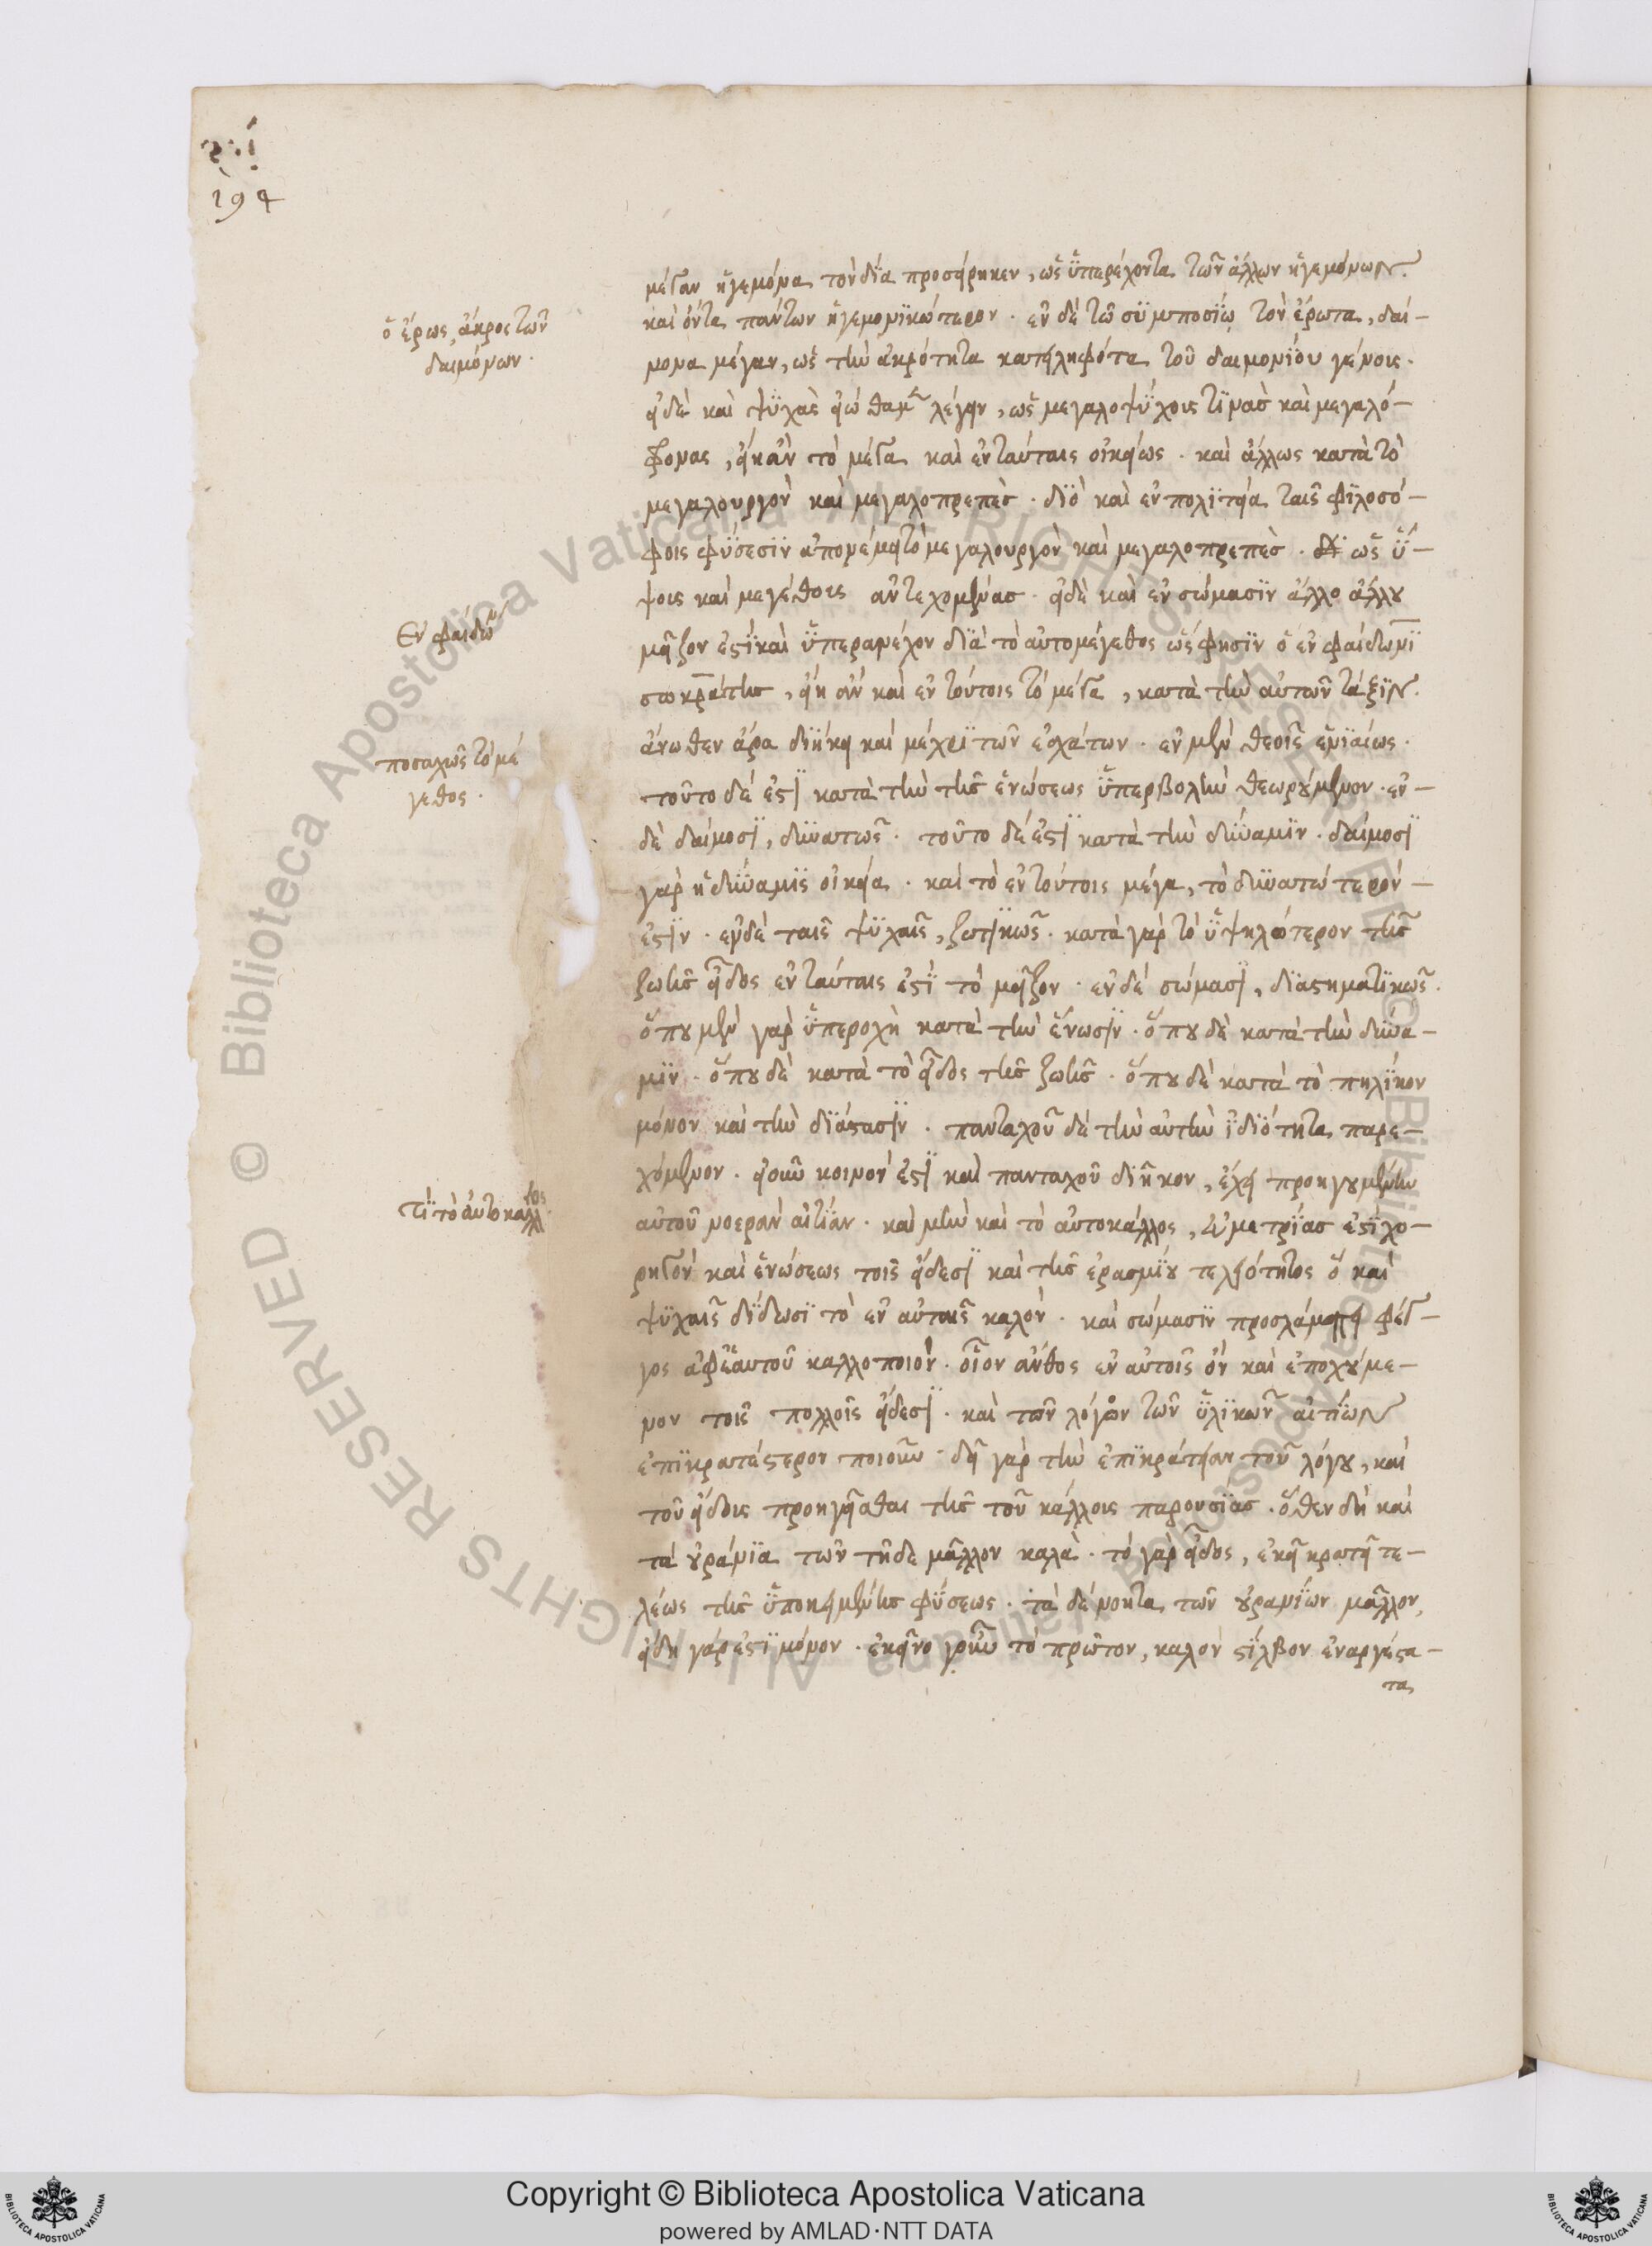 194
μέγαν ἡγεμόνα τὸν δία προσείρηκεν, ὡς ὑπερέχοντα τῶν ἄλλων ἡγεμόνων.
καὶ ὄντα πάντων ἡγεμονικώτερον· ἐν δὲ τῶ συμποσίω τὸν ἔρωτα, δαί-
ὁ ἔρως, ἄκρος τῶν
δαιμόνων.
μονα μέγαν, ὡς τὴν ἀκρότητα κατειληφότα τοῦ δαιμονίου γένους.
εἰ δὲ καὶ ψυχὰς εἰώθαμεν λέγειν, ὡς μεγαλοψύχους τινὰς καὶ μεγαλό-
φρονας, εἴη ἂν τὸ μέγα καὶ ἐν ταύταις οἰκείως. καὶ ἄλλως κατὰ τὸ
μεγαλουργὸν καὶ μεγαλοπρεπὲς. διὸ καὶ ἐν πολιτεία ταῖς φιλοσό-
φοις φύσεσιν ἀπονέμει τὸ μεγαλουργὸν καὶ μεγαλοπρεπὲς. ὡς ὕ-
ψους καὶ μεγέθους ἀντεχομένας. εἰ δὲ καὶ ἐν σώμασιν ἄλλο ἄλλου
Ἐν φαίδωνι
μεῖζον ἐστὶ καὶ ὑπερανέχον διὰ τὸ αὐτομέγεθος ὥς φησιν ὁ ἐν φαίδωνι
σωκράτης, εἴη ἂν καὶ ἐν τούτοις τὸ μέγα, κατὰ τὴν αὐτῶν τάξιν.
ποσαχῶς τὸ μέ
γεθος.
ἄνωθεν ἄρα διήκει καὶ μέχρι τῶν ἐσχάτων. ἐν μὲν θεοῖς ἑνιαίως.
τοῦτο δέ ἐστι κατὰ τὴν τῆς ἑνώσεως ὑπερβολὴν θεωρούμενον. ἐν
δὲ δαίμοσι, δυνατῶς. τοῦτο δέ ἐστι κατὰ τὴν δύναμιν. δαίμοσι
γὰρ ἡ δύναμις οἰκεία. καὶ τὸ ἐν τούτοις μέγα, τὸ δυνατώτερόν
ἐστιν. ἐν δὲ ταῖς ψυχαῖς, ζωτικῶς. κατὰ γὰρ τὸ ὑψηλότερον τῆς
ζωῆς εἶδος ἐν ταύταις ἐστὶ τὸ μεῖζον. ἐν δὲ σώμασι, διαστηματικῶς.
ὅπου μὲν γὰρ ὑπεροχὴ κατὰ τὴν ἕνωσιν. ὅπου δὲ κατὰ τὴν δύνα-
μιν. ὅπου δὲ κατὰ τὸ εἶδος τῆς ζωῆς. ὅπου δὲ κατὰ τὸ πηλίκον
μόνον καὶ τὴν διάστασιν. πανταχοῦ δὲ τὴν αὐτὴν ἰδιότητα παρε-
χόμενον. εἰ οὖν κοινόν ἐστι καὶ πανταχοῦ διῆκον, ἔχει προηγουμένην
τί τὸ αὐτοκάλλος.
αὐτοῦ νοερὰν αἰτίαν. καὶ μὴν καὶ τὸ αὐτοκάλλος, συμετρίας ἐστὶ χο-
ρηγὸν καὶ ἑνώσεως τοῖς εἴδεσι καὶ τῆς ἐρασμίου τελειότητος ὃ καὶ
ψυχαῖς δίδωσι τὸ ἐν αὐταῖς καλὸν. καὶ σώμασιν προσλάμπει φέγ-
γος ἀφ' ἑαυτοῦ καλλοποιὸν. οἷον ἄνθος ἐν αὐτοῖς ὂν καὶ ἐποχούμε-
νον τοῖς πολλοῖς εἴδεσι. καὶ τῶν λόγων τῶν ὑλικῶν αἰτίων
ἐπικρατέστερον ποιοῦν. δεῖ γὰρ τὴν ἐπικράτειαν τοῦ λόγου, καὶ
τοῦ εἴδους προηγεῖσθαι τῆς τοῦ κάλλους παρουσίας. ὅθεν δὴ καὶ
τὰ οὐράνια τῶν τῇδε μᾶλλον καλὰ. τὸ γὰρ εἶδος, ἐκεῖ κρατεῖ τε-
λέως τῆς ὑποκειμένης φύσεως. τὰ δὲ νοητὰ τῶν οὐρανίων μᾶλλον,
εἴδη γάρ ἐστι μόνον. ἐκεῖνο γοῦν τὸ πρῶτον, καλὸν στίλβον ἐναργέστα-
τα
Copyright © Biblioteca Apostolica Vaticana
powered by AMLAD·NTT DATA
© Biblioteca Apostolica Vaticana ALL RIGHTS RESERVED
© Biblioteca Apostolica Vaticana ALL RIGHTS RESERVED